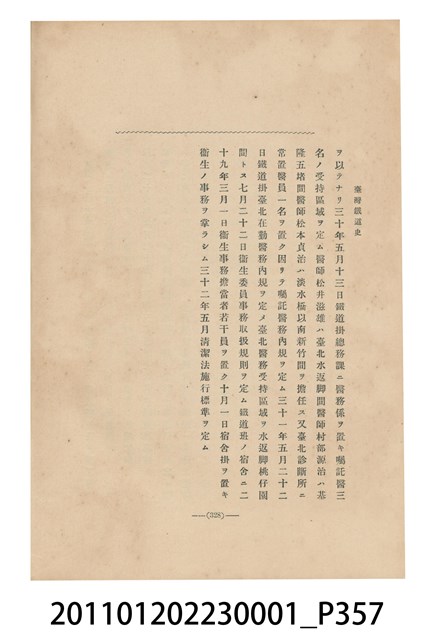 臺灣鐵道史
ヲ以テナリ三十年五月十三日鐵道掛總務課ニ醫務係ヲ置キ囑託醫三
名ノ受持區域ヲ定ム醫師松井滋雄ハ臺北水返脚間醫師村部源治ハ基
隆五堵間醫師松本貞治ハ淡水橋以南新竹間ヲ擔任ス又臺北診斷所ニ
常置醫員一名ヲ置ク因リテ囑託醫務內規ヲ定ム三十一年五月二十二
日鐵道掛臺北在勤醫務內規ヲ定メ臺北醫務受持區域ヲ水返脚桃仔園
間トス七月二十二日衞生委員事務取扱規則ヲ定ム鐵道班ノ宿舍ニ二
十九年三月一日衞生事務擔當者若干員ヲ置ク十月一日宿舍掛ヲ置キ
衞生ノ事務ヲ掌ラシム三十二年五月淸潔法施行標準ヲ定ム
(328)
201101202230001_P357